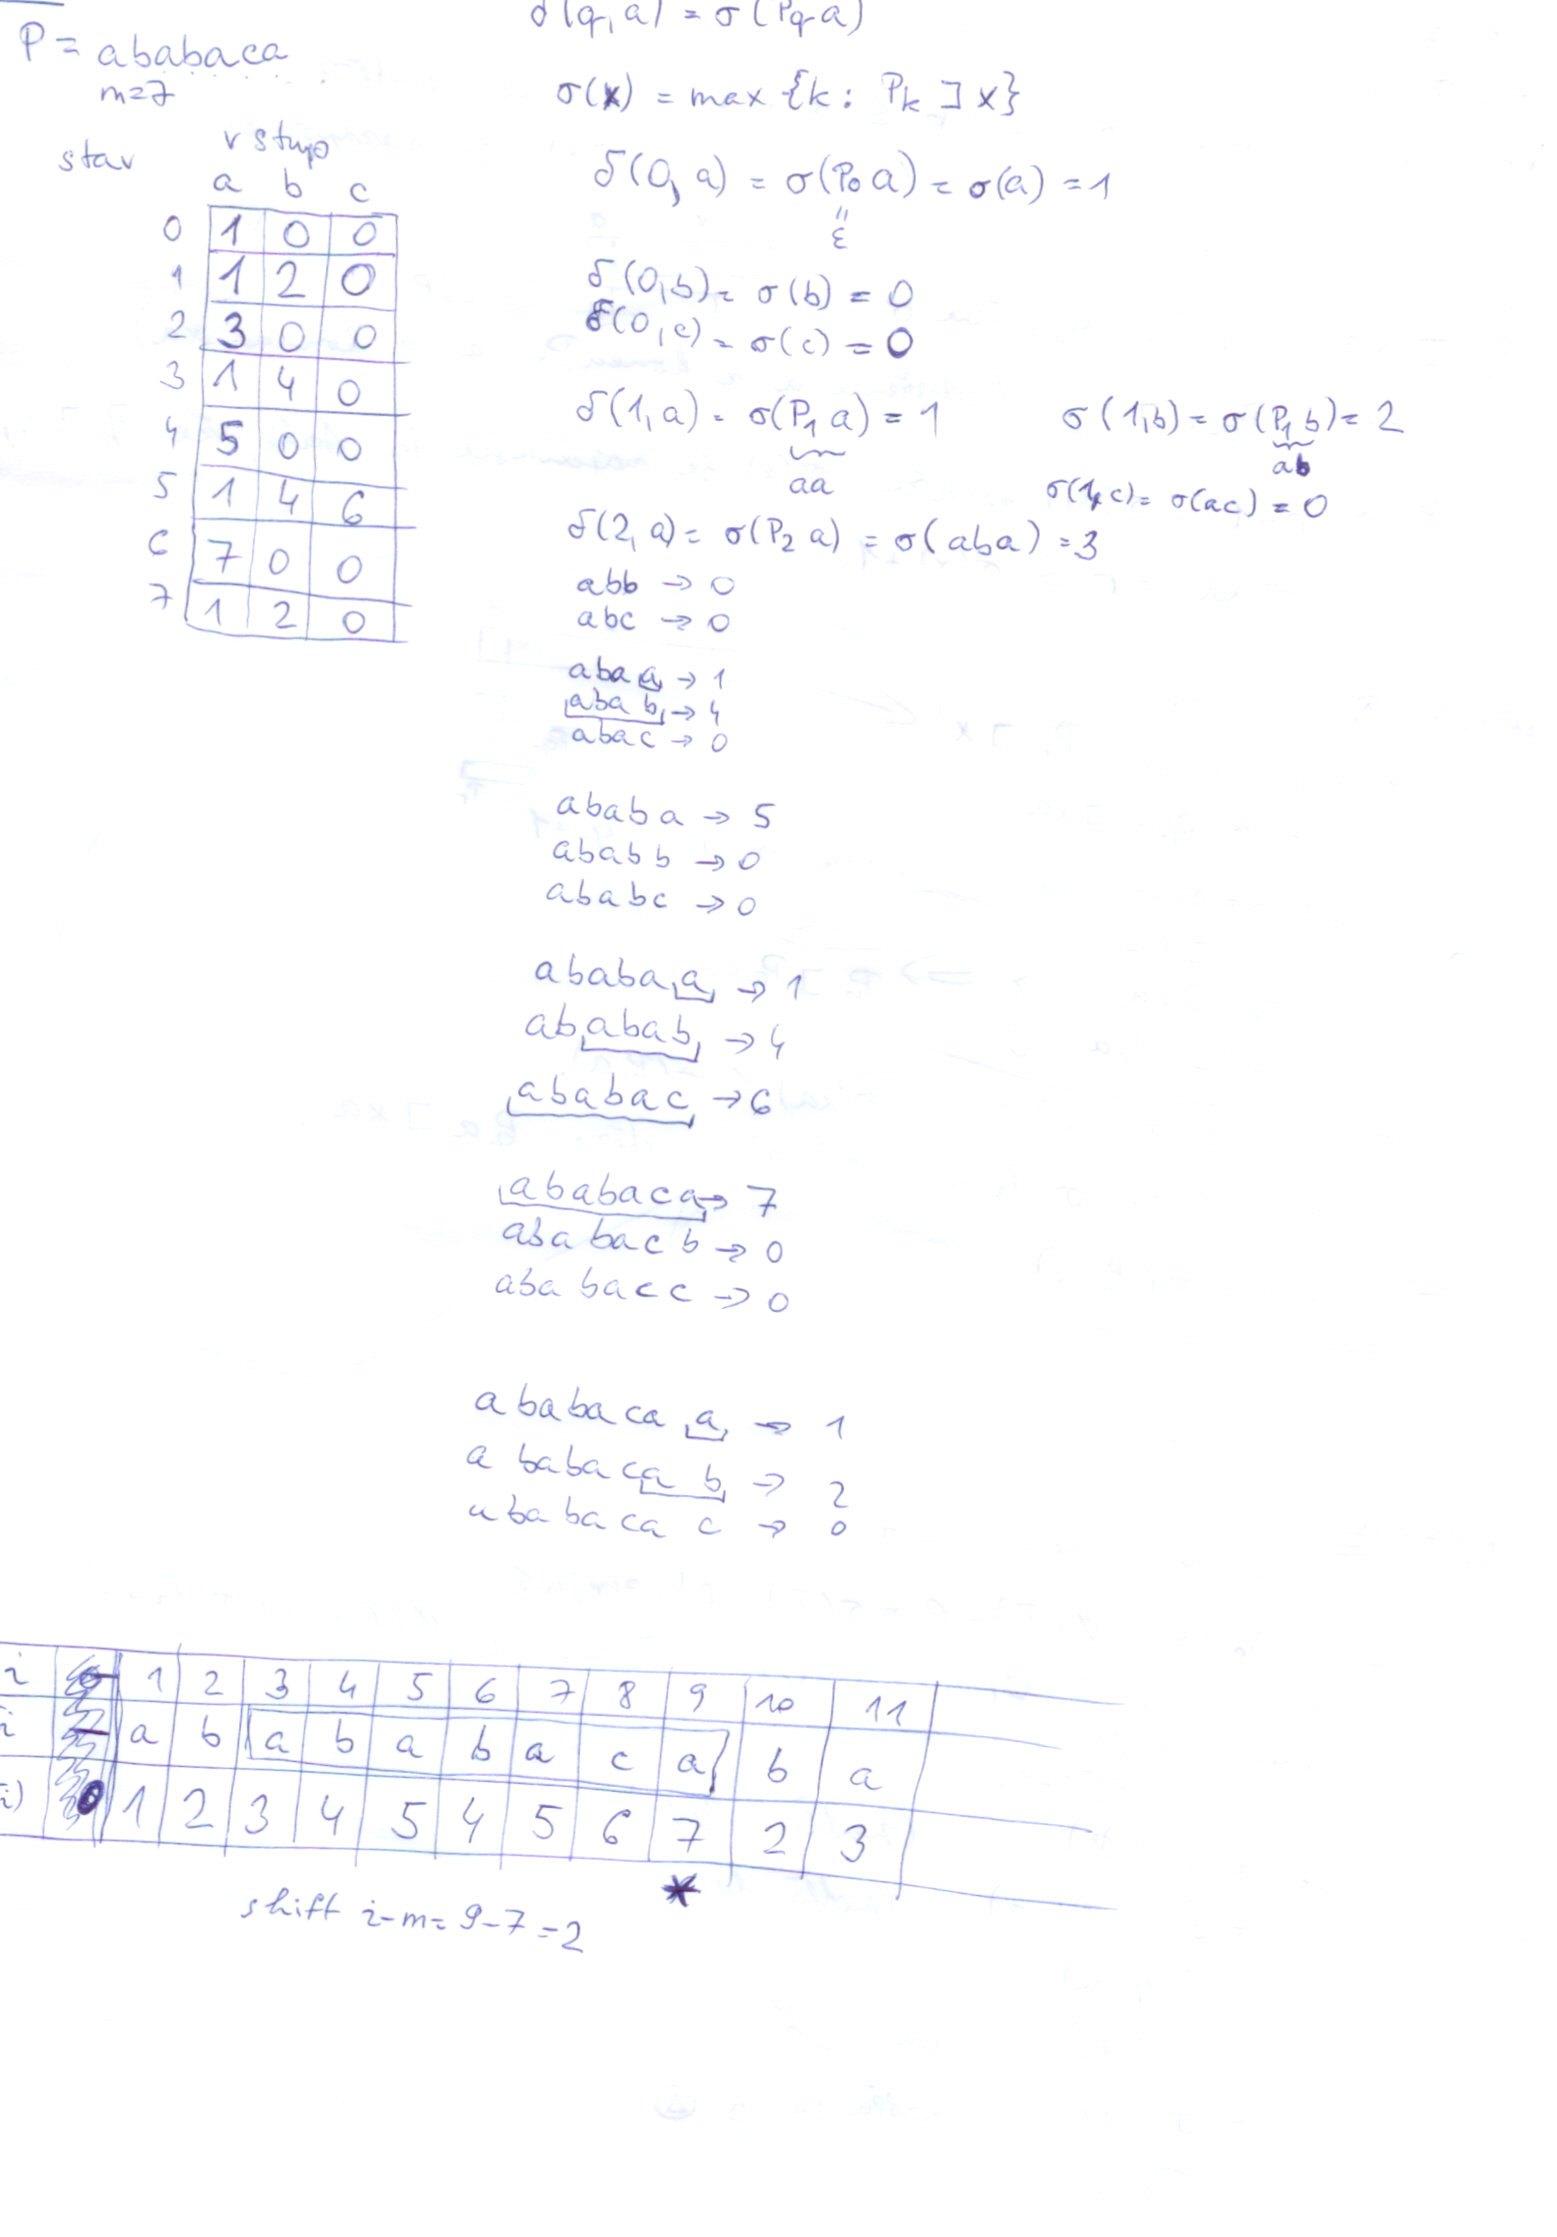 δ(q,a) = σ(Pq a)
P = ababaca
m=7
σ(x) = max {k: Pk ⊐ x}
stav
vstup
a b c
0 1 0 0
1 1 2 0
2 3 0 0
3 1 4 0
4 5 0 0
5 1 4 6
6 7 0 0
7 1 2 0
δ(0, a) = σ(P0 a) = σ(a) = 1
"
ε
δ(0,b) = σ(b) = 0
δ(0,c) = σ(c) = 0
δ(1,a) = σ(P1 a) = 1
aa
σ(1,b) = σ(P1 b) = 2
ab
σ(1,c) = σ(ac) = 0
δ(2,a) = σ(P2 a) = σ(aba) = 3
abb → 0
abc → 0
abaa → 1
abab → 4
abac → 0
ababa → 5
ababb → 0
ababc → 0
ababaa → 1
ababab → 4
ababac → 6
ababaca → 7
ababacb → 0
ababacc → 0
ababacaa → 1
ababacab → 2
ababacac → 0
i 1 2 3 4 5 6 7 8 9 10 11
i — a b a b a b a c a b a
i) 0 1 2 3 4 5 4 5 6 7 2 3
*
shift i-m = 9-7 = 2